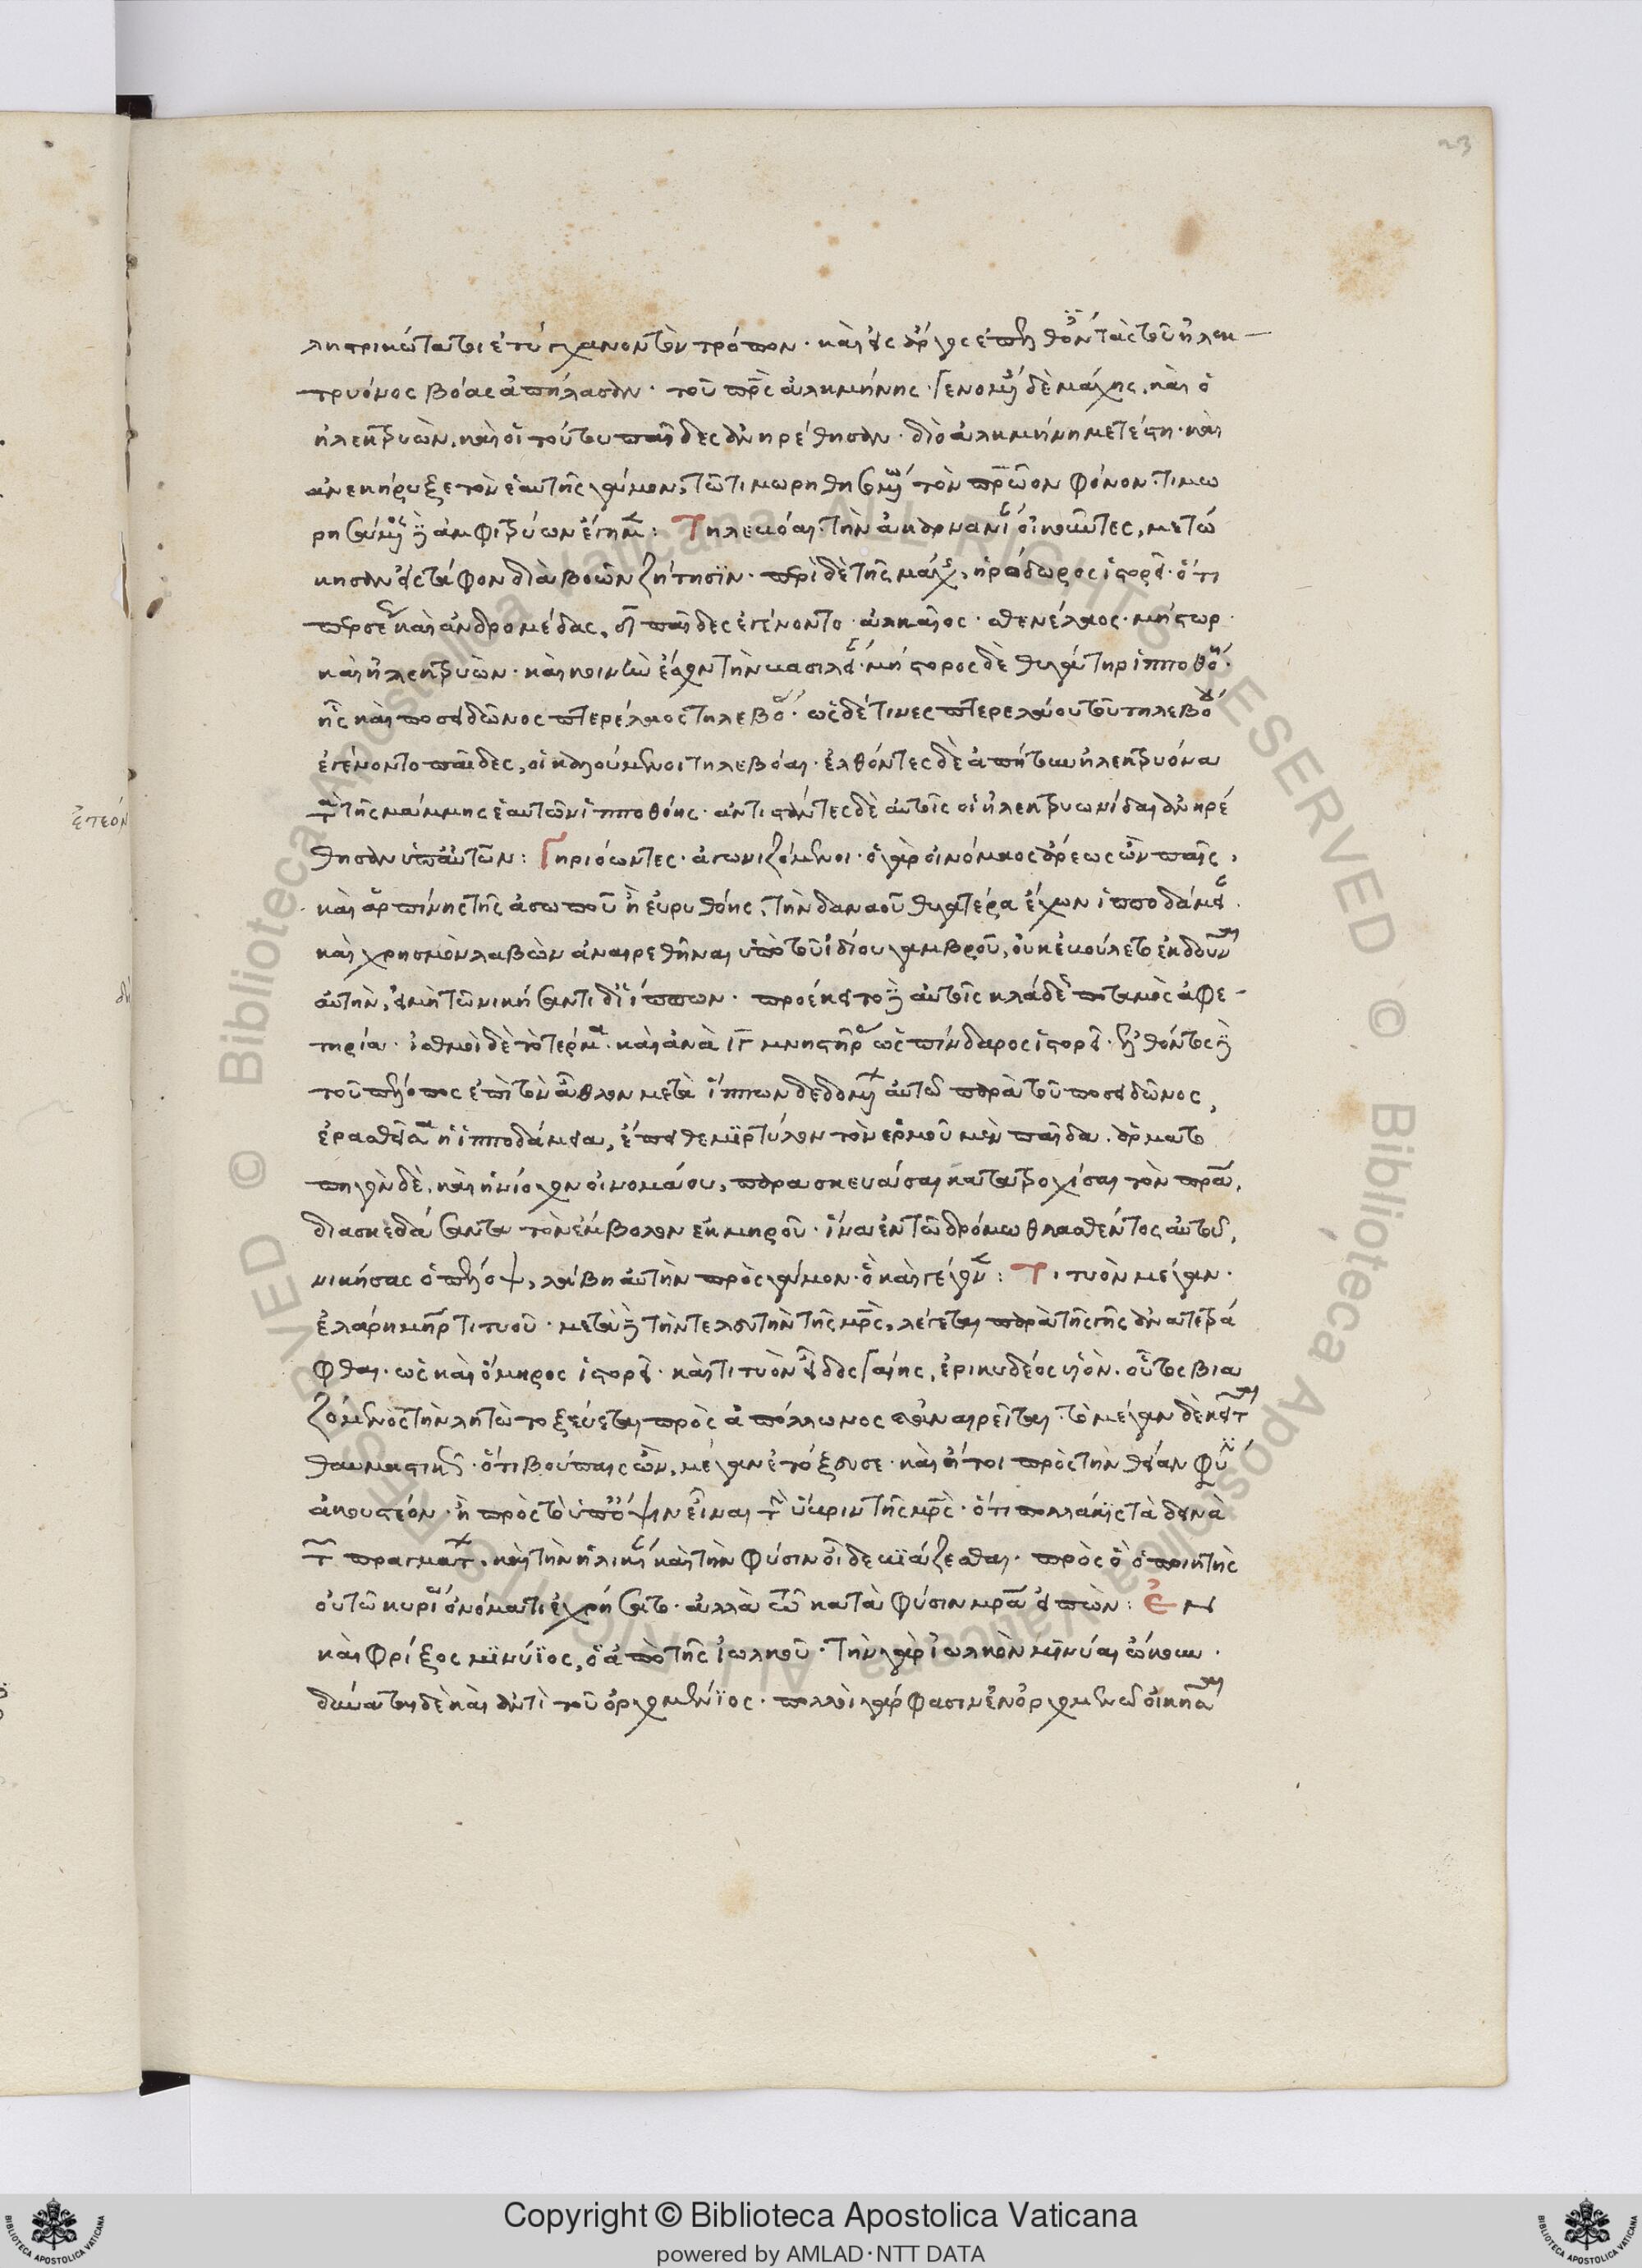 ληστρικώτατοι ἐτύγχανον τὸν τρόπον. καὶ εἰς ἄργος ἐπελθόντες τὰς τοῦ ἠλεκ-
τρυόνος βόας ἀπήλασαν. τοῦ πρς ἀλκμήνης. γενομένης δὲ μάχης, καὶ ὁ
ἠλεκτρυὼν, καὶ οἱ τούτου παῖδες ἀνηρέθησαν. διὸ ἀλκμήνη μετέστη. καὶ
ἀνεκήρυξε τὸν ἑαυτῆς γάμον, τῶ τιμωρησαμένω τὸν πρῶον φόνον. τιμω
ρησάμενος γὰρ ἀμφιτρύων ἔγημεν: Τηλεβόαι. τὴν ἀκαρνανίαν οἰκοῦντες, μετώ
κησαν εἰς τάφον διὰ βοῶν ζήτησϊν. περὶ δὲ τῆς μάχης, ἡρόδωρος ἱστορεῖ. ὅτι
περσέως καὶ ἀνδρομέδας, οἱ παῖδες ἐγένοντο. ἀλκαῖος. σθενέλαος. μήστωρ.
καὶ ἠλεκτρυὼν. καὶ κοινῶ ἔσχον τὴν βασιλείαν. μήστορος δὲ θυγάτηρ ἱπποθόη.
ἧς καὶ ποσειδῶνος πτερέλαος τηλεβόας. ὡς δέ τινες πτερελάου τοῦ τηλεβόου
ἐγένοντο παῖδες, οἱ καλούμενοι τηλεβόαι. ἐλθόντες δὲ ἀπήτουν ἠλεκτρυόνα
τὰ τῆς μάμμης ἑαυτῶν ἱπποθόης. ἀντιστάντες δὲ αὐτοῖς οἱ ἠλεκτρυωνίδαι ἀνηρέ
θησαν ὑπ' αὐτῶν: Γηριόωντες. ἀγωνιζόμενοι. ὁ γὰρ οἰνόμαος ἄρεως ὢν παῖς,
καὶ ἁρπίνης τῆς ἀσωποῦ ἢ εὐρυθόης, τὴν δαναοῦ θυγατέρα ἔχων ἱπποδάμειαν.
καὶ χρησμὸν λαβὼν ἀναιρεθῆναι ὑπὸ τοῦ ἰδίου γαμβροῦ, οὐκ ἐβούλετο ἐκδοῦναι
αὐτὴν, εἰ μὴ τῶ νικήσαντι δι' ἵππων. προέκειτο γὰρ αὐτοῖς κλάδεος ποταμὸς ἀφε-
τηρία. ἰσθμοὶ δὲ τὸ τέρμα. καὶ ἀναιρεῖ ιγ μνηστῆρας ὡς πίνδαρος ἱστορεῖ. ἐλθόντος γὰρ
τοῦ πέλοπος ἐπὶ τὸν ἆθλον μετὰ ἵππων δεδομένων αὐτῶ παρὰ τοῦ ποσειδῶνος,
ἐρασθεῖσα ἡ ἱπποδάμεια, ἔπεισε μϋρτύλον τὸν ἑρμοῦ μὲν παῖδα. ἁρματο
πηγὸν δὲ, καὶ ἡνίοχον οἰνομάου, παρασκευάσαι κατατροχίσαι τὸν πρα,
διασκεδάσαντα τὸν ἔμβολον ἐκ μηροῦ. ἵνα ἐν τῶ δρόμω θλασθέντος αὐτοῦ,
νικήσας ὁ πέλοψ, λάβη αὐτὴν πρὸς γάμον. ὃ καὶ γέγονεν: Τιτυὸν μέγαν.
ἐλάρη μηρ τιτυοῦ. μετὰ γὰρ τὴν τελευτὴν τῆς μρς, λέγεται παρὰ τῆς γῆς ἀνατετρά
φθαι. ὡς καὶ ὅμηρος ἱστορεῖ. καὶ τιτυὸν εἶδος γαίης, ἐρικυδέος υἱὸν. οὗτος βια
ζόμενος τὴν λητὼ τοξεύεται πρὸς ἀπόλλωνος καὶ ἀναιρεῖται. τὸ μέγαν δὲ κεῖται
θαυμαστικῶς. ὅτι βούπαις ὢν, μέγαν ἐτόξευσε. καὶ ἤτοι πρὸς τὴν θείαν φύσιν
ἀκουστέον. ἢ πρὸς τὸ ὑπόψιν εἶναι τὴν ὕβριν τῆς μρς. ὅτι πολλάκις τὰ δεινὰ
τῶν πραγμάτων, καὶ τὴν ἡλικίαν καὶ τὴν φύσιν οἶδε βϊάζεσθαι. πρὸς ὃ ὁ ποιητὴς
οὐ τῶ κυρίω ὀνόματι ἐχρήσατο. ἀλλὰ τῶ κατὰ φύσιν μρα εἰπὼν: Ἐν
καὶ φρίξος μϊνύϊος, ὃ ἀπὸ τῆς ἰωλκοῦ. τὴν γὰρ ἰωλκὸν μϊνύαι ὤκουν.
δύναται δὲ καὶ ἀντὶ τοῦ ὀρχομενίϊος. πολλοὶ γάρ φασιν ἐν ὀρχομενῶ οἰκῆσαι
ἐτεόν
23